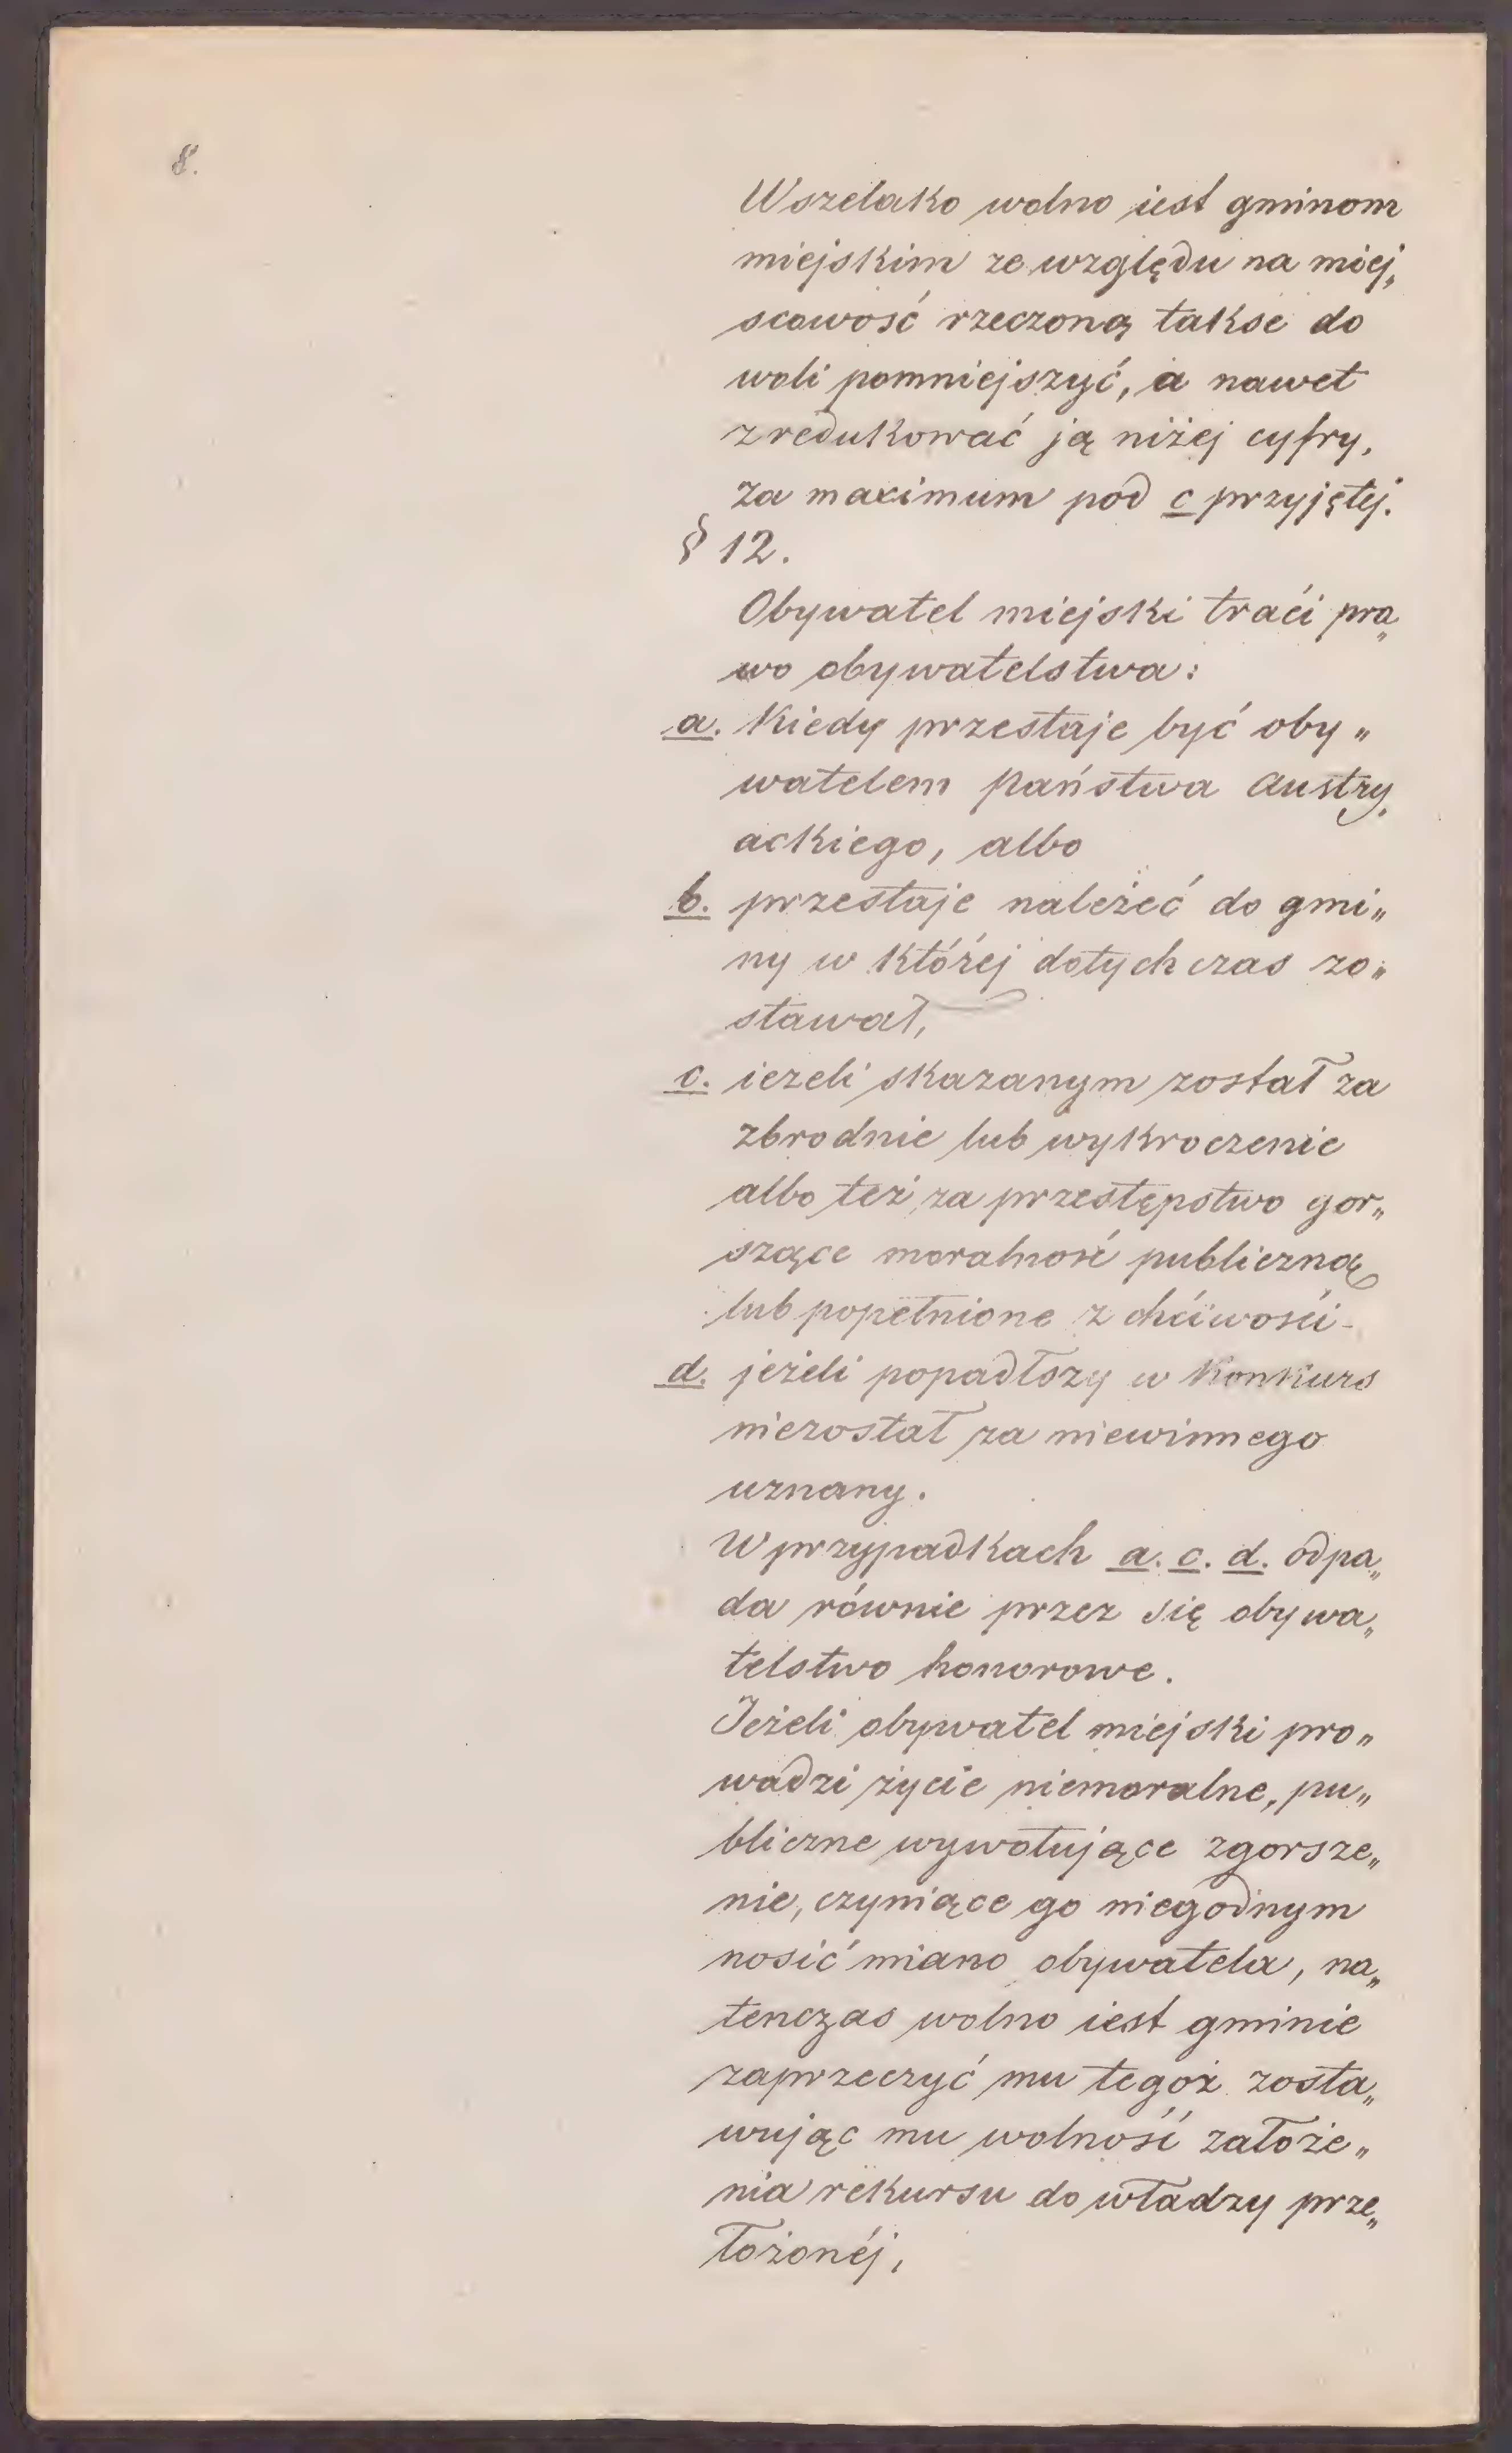 8.
Wszelako wolno iest gminom
miejskim ze względu na miej„
scowość rzeczoną takse do
woli pomniejszyć, a nawet
zredukować ją niżej cyfry,
za maximum pod c przyjętej.
§ 12.
Obywatel miejski traći pra„
wo obywatelstwa:
a. Kiedy przestaje być oby„
watelem państwa Austry„
ackiego, albo
b. przestaje należeć do gmi„
ny w któréj dotychczas zo„
stawał,
c. ieżeli skazanym został za
zbrodnie lub wykroczenie
albo też za przestępstwo gor„
szące moralność publiczną
lub popełnione z chćiwośći -
d. jeżeli popadłszy w Konkurs
niezostał za niewinnego
uznany.
W przypadkach a. c. d. odpa„
da równie przez się obywa„
telstwo honorowe.
Jeżeli obywatel miejski pro„
wadzi życie niemoralne, pu„
bliczne wywołujące zgorsze„
nie, czyniące go niegodnym
nosić miano obywatela, na„
tenczas wolno iest gminie
zaprzeczyć mu tegoż zosta„
wując mu wolność założe„
nia rekursu do władzy prze„
łożonéj,